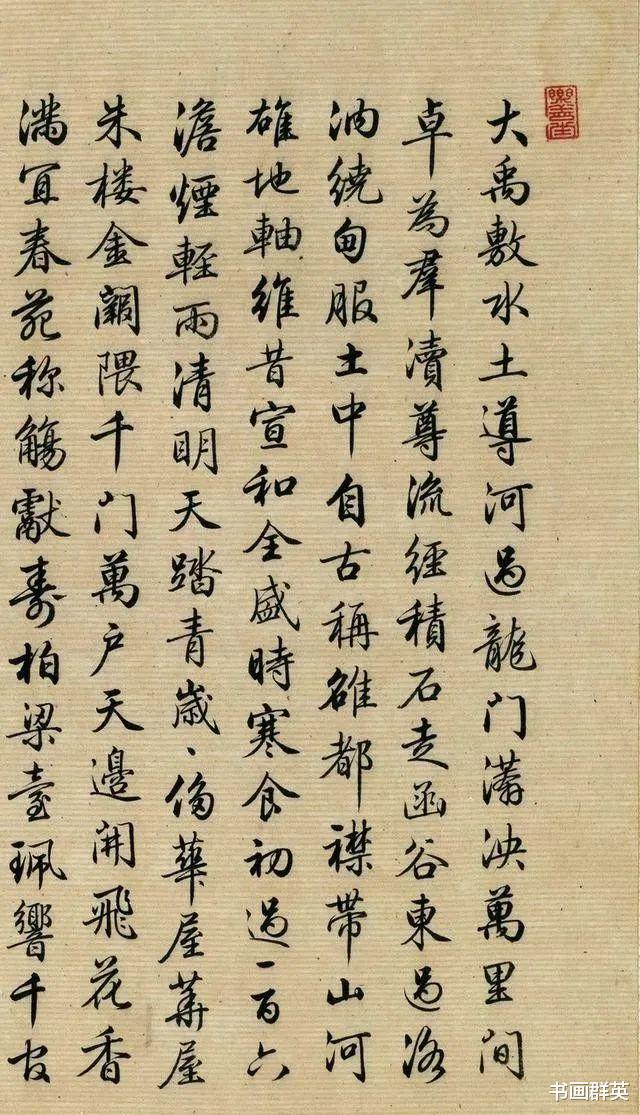 大禹敷水土導河過龍門瀁泱萬里間
卓為羣瀆尊流經積石走函谷東過洛
汭繞甸服土中自古稱雄都襟帶山河
雄地軸維昔宣和全盛時寒食初過一百六
澹煙輕雨清明天踏青歲、傷華屋華屋
朱楼金闕隈千门萬户天邊開飛花香
滿宜春苑称觴獻壽柏梁臺珮響千官
书画群英